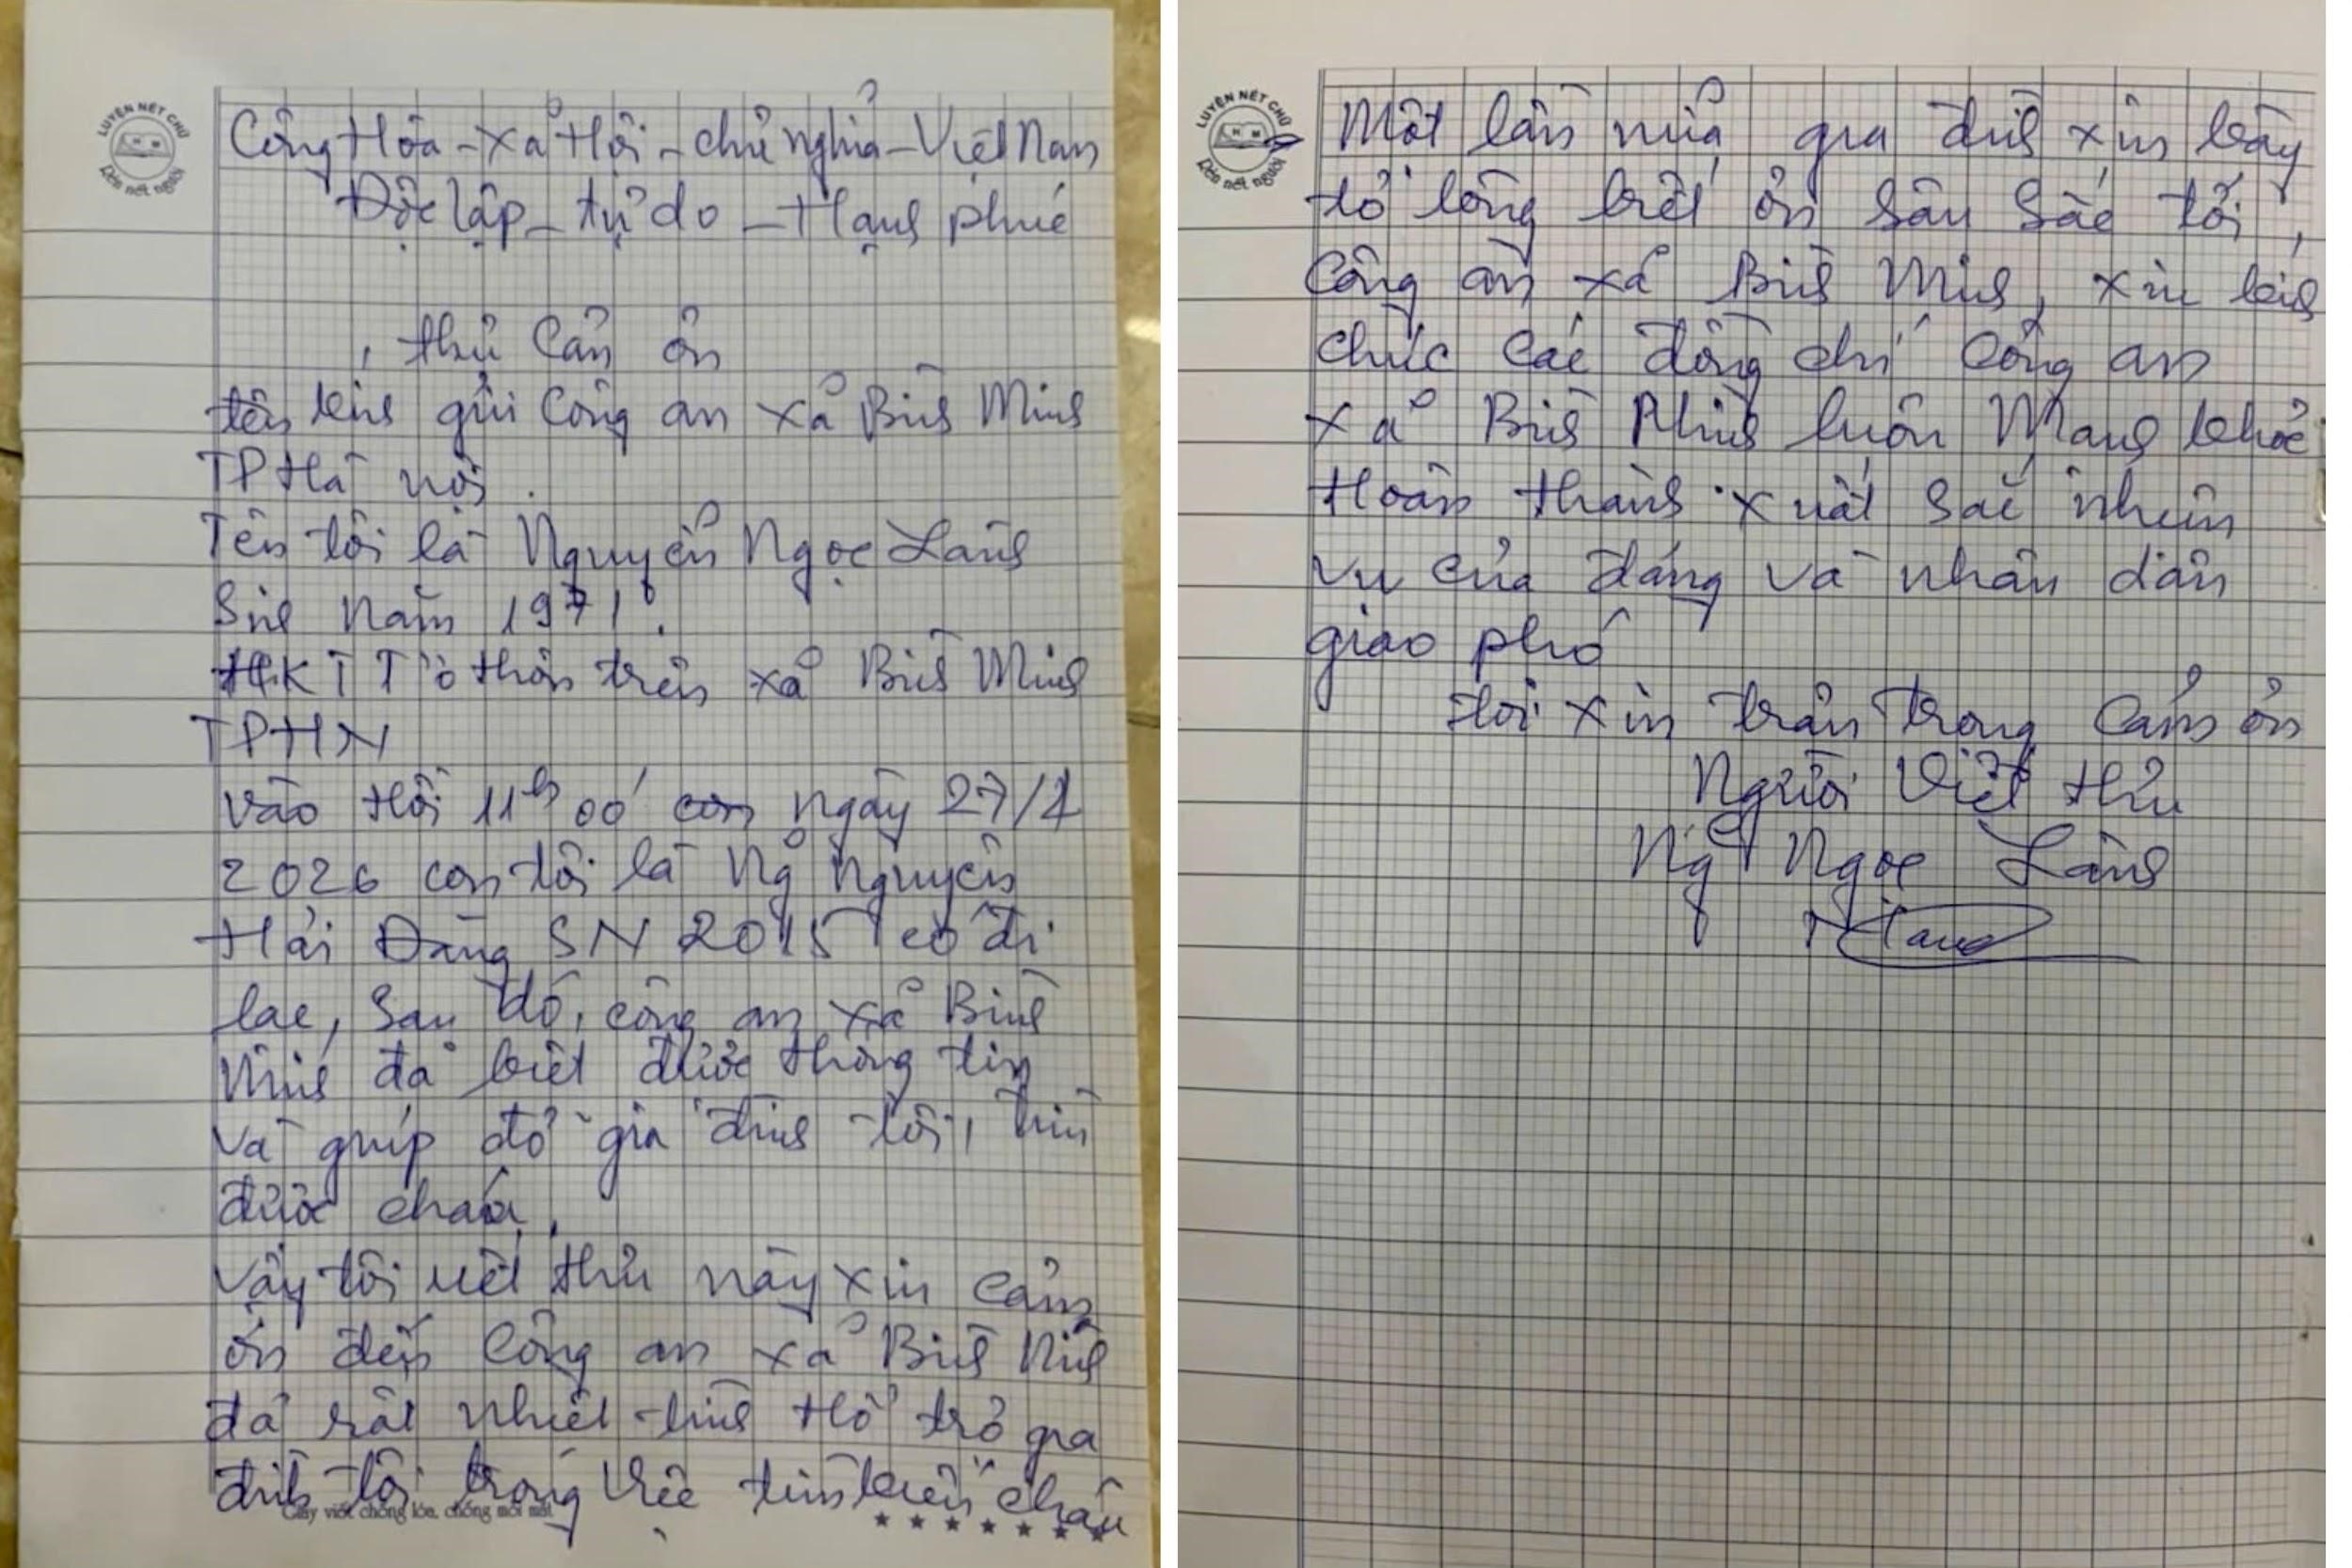 LUYỆN NÉT CHỮ
Rèn nết người
Cộng Hòa - Xả Hội - chủ nghỉa - Việt Nam
Độc lập - tự do - Hạnh phúc
thư Cản ơn
kính gửi Công an xả Bình Minh
TP Hà nội.
Tên tôi là Nguyển Ngọc Lành
Sinh năm 1971.
HKTT thôn trên xả Bình Minh
TPHN
vào Hồi 11h 00' con ngày 27/1
2026 con tôi là Ng Nguyên
Hải Đăng SN 2015 có đi
lạc, Sau đó, công an xả Bình
Minh đả biết được thông tin
và giúp đở gia đình tôi, tìm
được cháu.
Vậy tôi viết thư này xin cảm
ơn đến Công an xả Bình Minh
đả rất nhiệt tình Hổ trợ gia
đình tôi trong việc tìm kiến cháu
Giấy viết chống lóa, chống mỏi mắt
LUYỆN NÉT CHỮ
Rèn nết người
Một lần nửa gia đình xin bày
tỏ lòng biết ơn sâu sắc tới,
Công an xả Bình Minh, xin kính
chúc các đồng chí Công an
xả Bình Minh luôn Mạnh khỏe
Hoàn thành xuất sắc nhiện
vụ của đảng và nhân dân
giao phó
tôi xin trân trọng cảm ơn
Người Viết thư
Ng Ngọc Lành